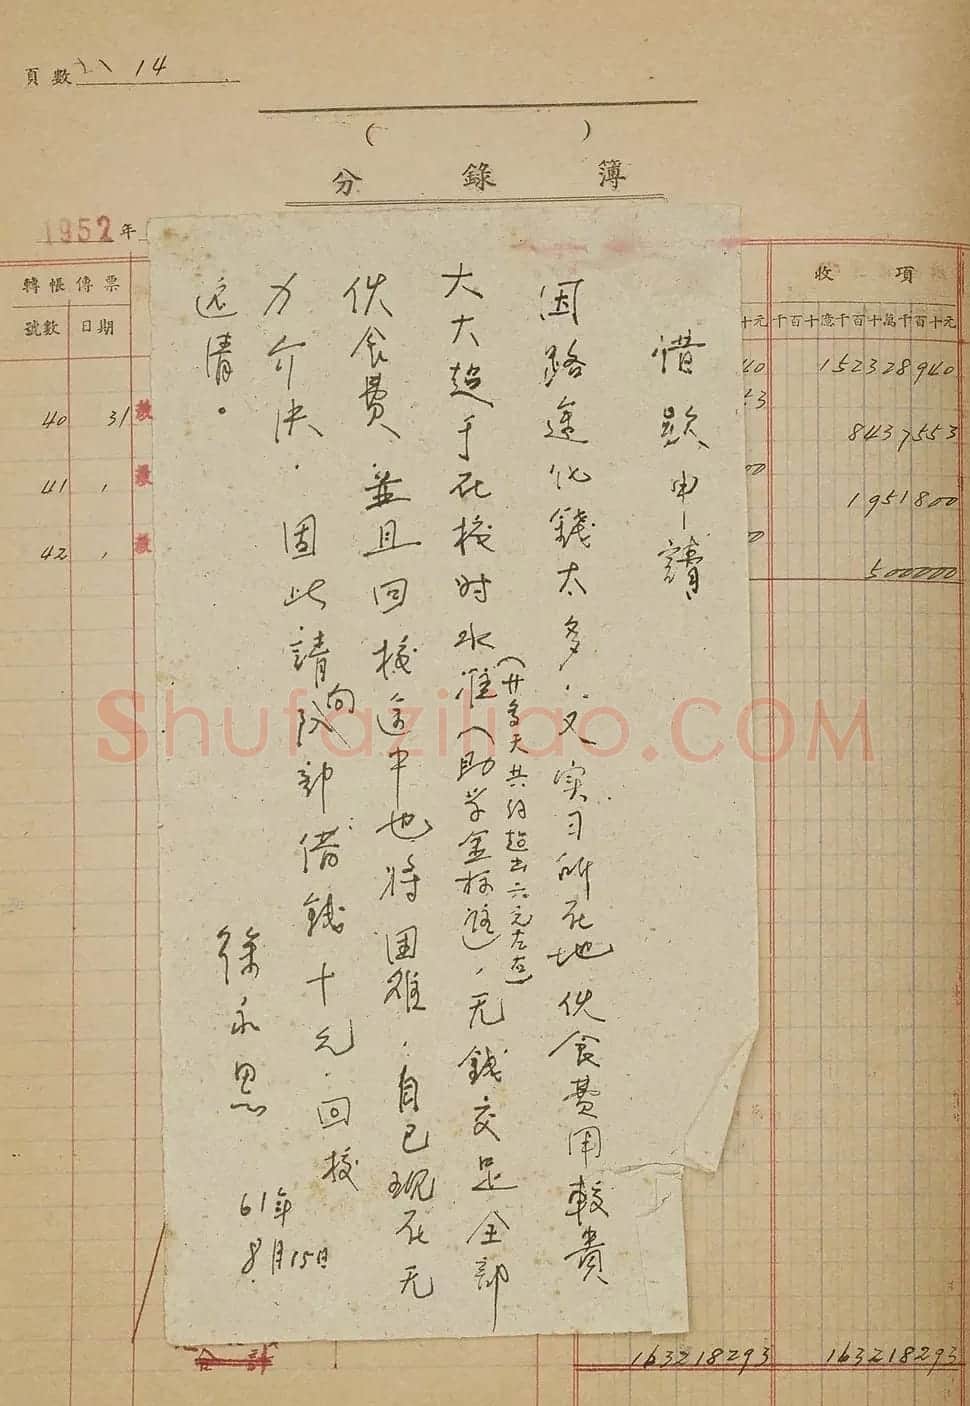 頁數 14
( )
分錄簿
1952年
轉帳傳票
號數 日期
收項
千百十億千百十萬千百十元
152328940
8437553
1951800
500000
40 31
41
42
借款申請
因路途化錢太多，又实习所在地伙食費用較贵
大大超于在校时水准（助学金标準），无錢交足全部
（廿多天共约超出六元左右）
伙食費，並且回校途中也将困难，自己現在无
力介决．固此請向队部借錢十元．回校
还清．
徐永思
61年
8月15日
163218293 163218293
Shufaziliao.COM